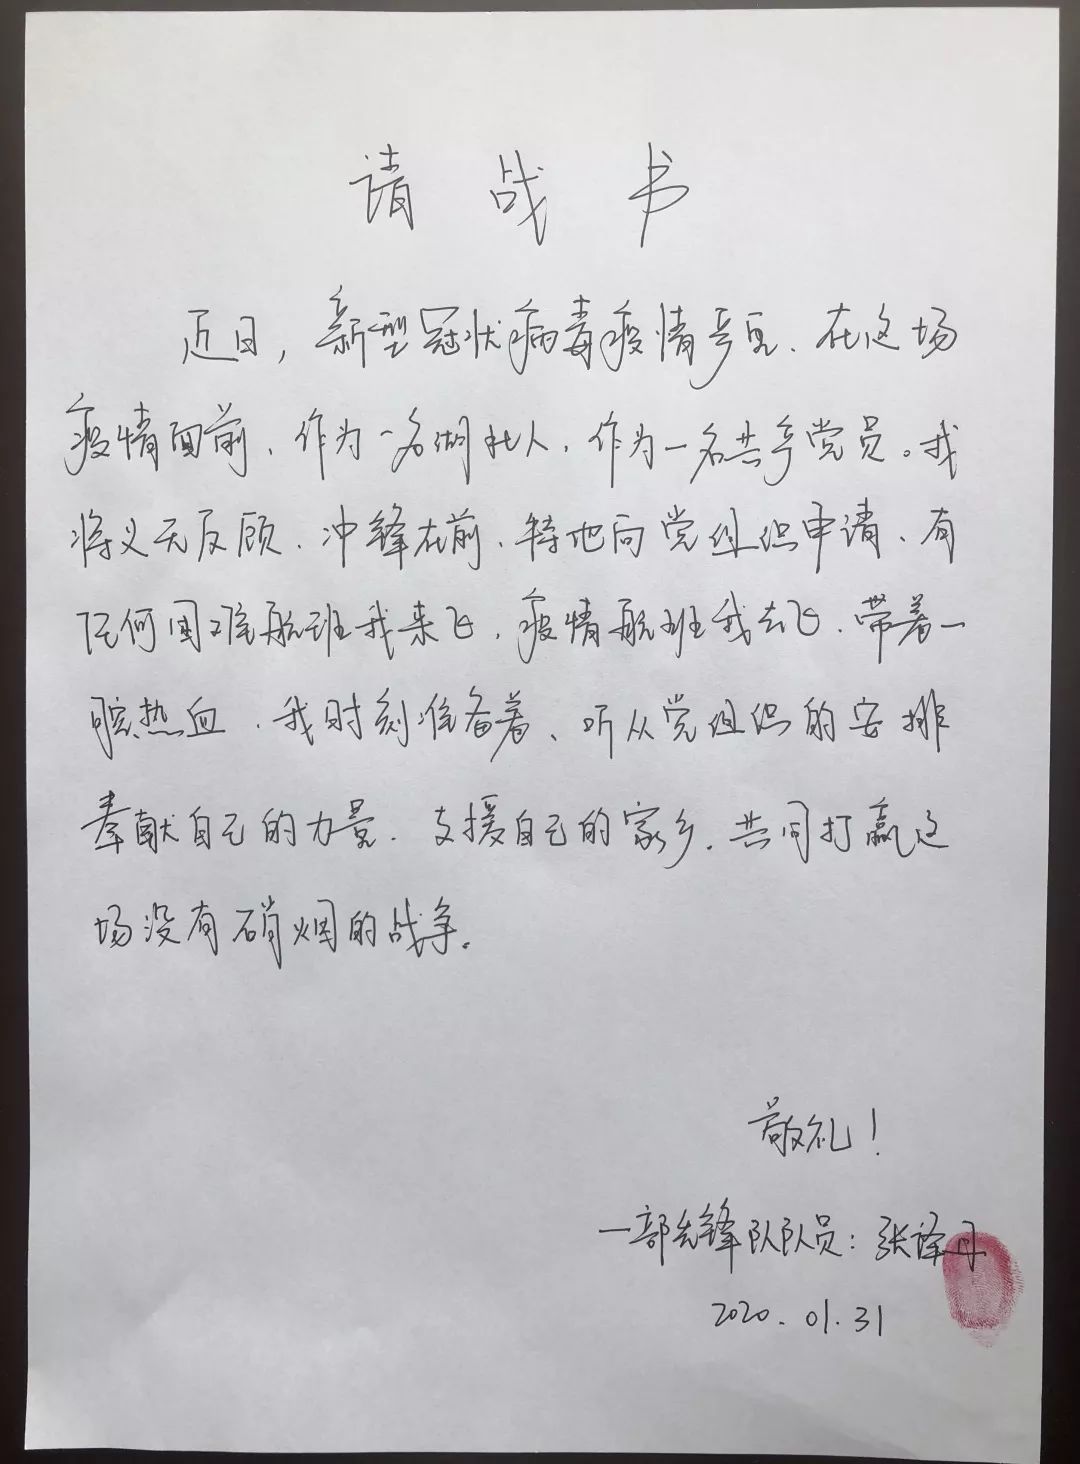 请战书
近日，新型冠状病毒疫情严重、在这场
疫情面前、作为一名湖北人、作为一名共产党员。我
将义无反顾、冲锋在前、特地向党组织申请、有
任何困难航班我来飞，疫情航班我去飞、带着一
腔热血、我时刻准备着、听从党组织的安排
奉献自己的力量、支援自己的家乡，共同打赢这
场没有硝烟的战争。
敬礼！
一部先锋队队员：张译丹
2020.01.31